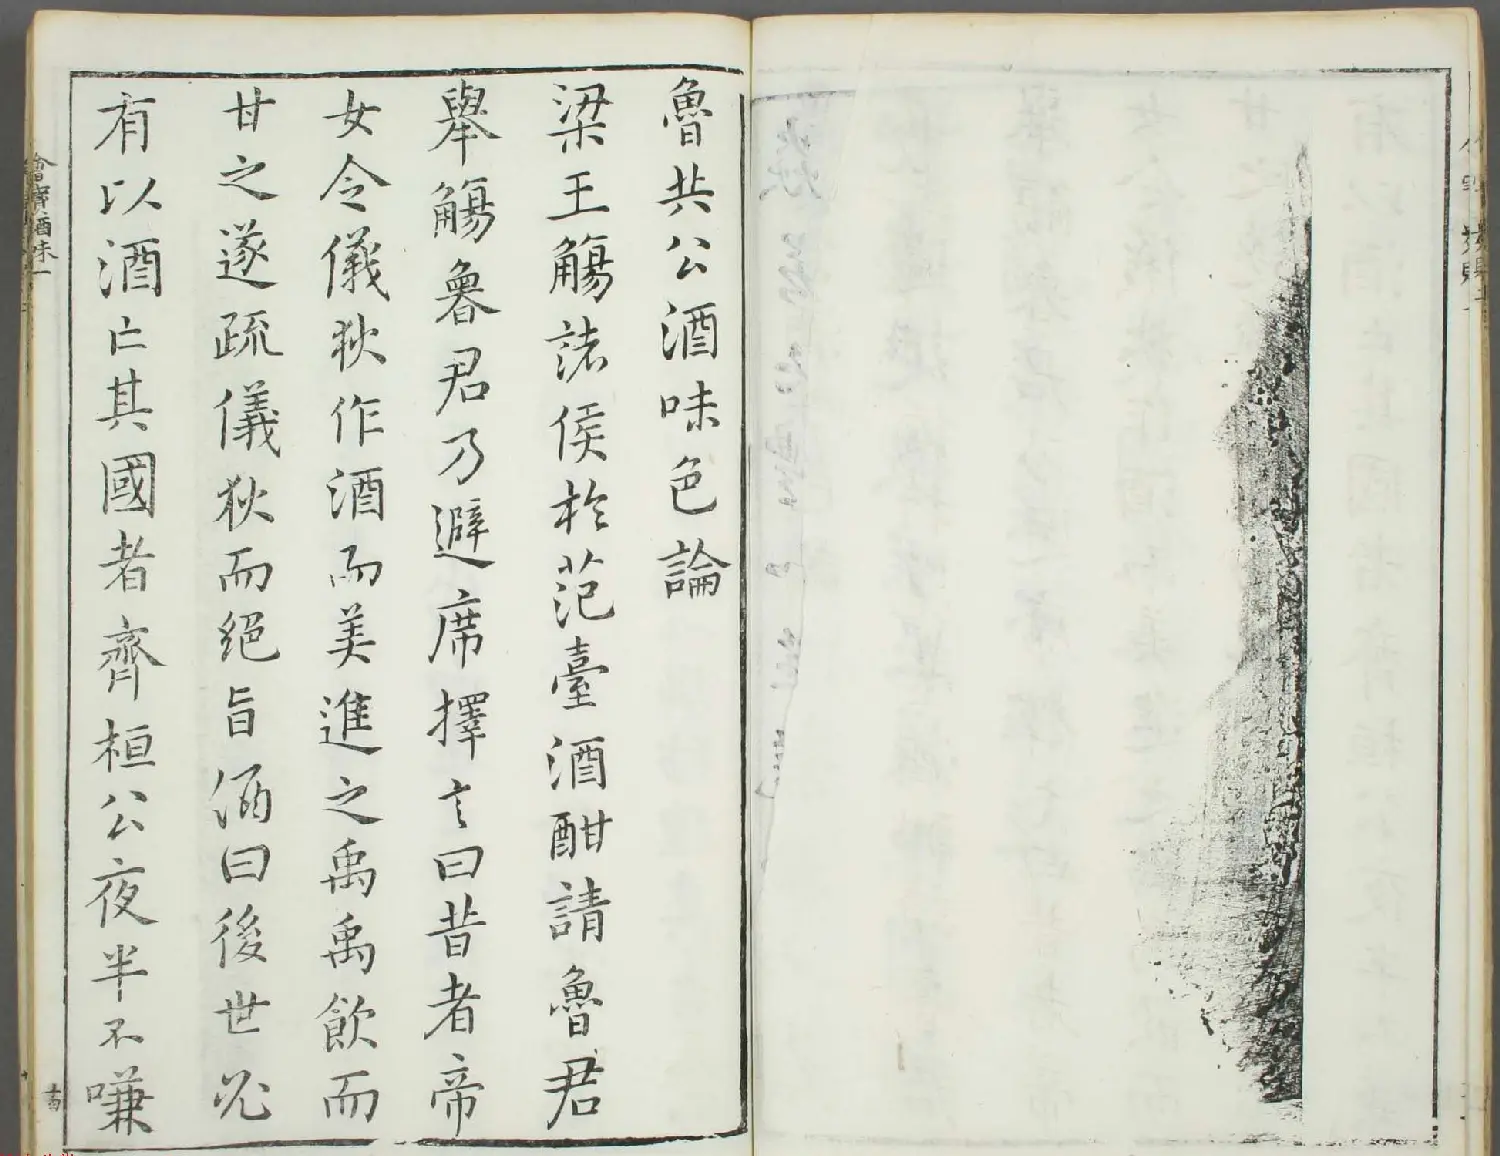 魯共公酒味色論
梁王觴諸侯於范臺酒酣請魯君
舉觴魯君乃避席擇言曰昔者帝
女令儀狄作酒而美進之禹禹飲而
甘之遂疏儀狄而絕旨酒曰後世必
有以酒亡其國者齊桓公夜半不嗛